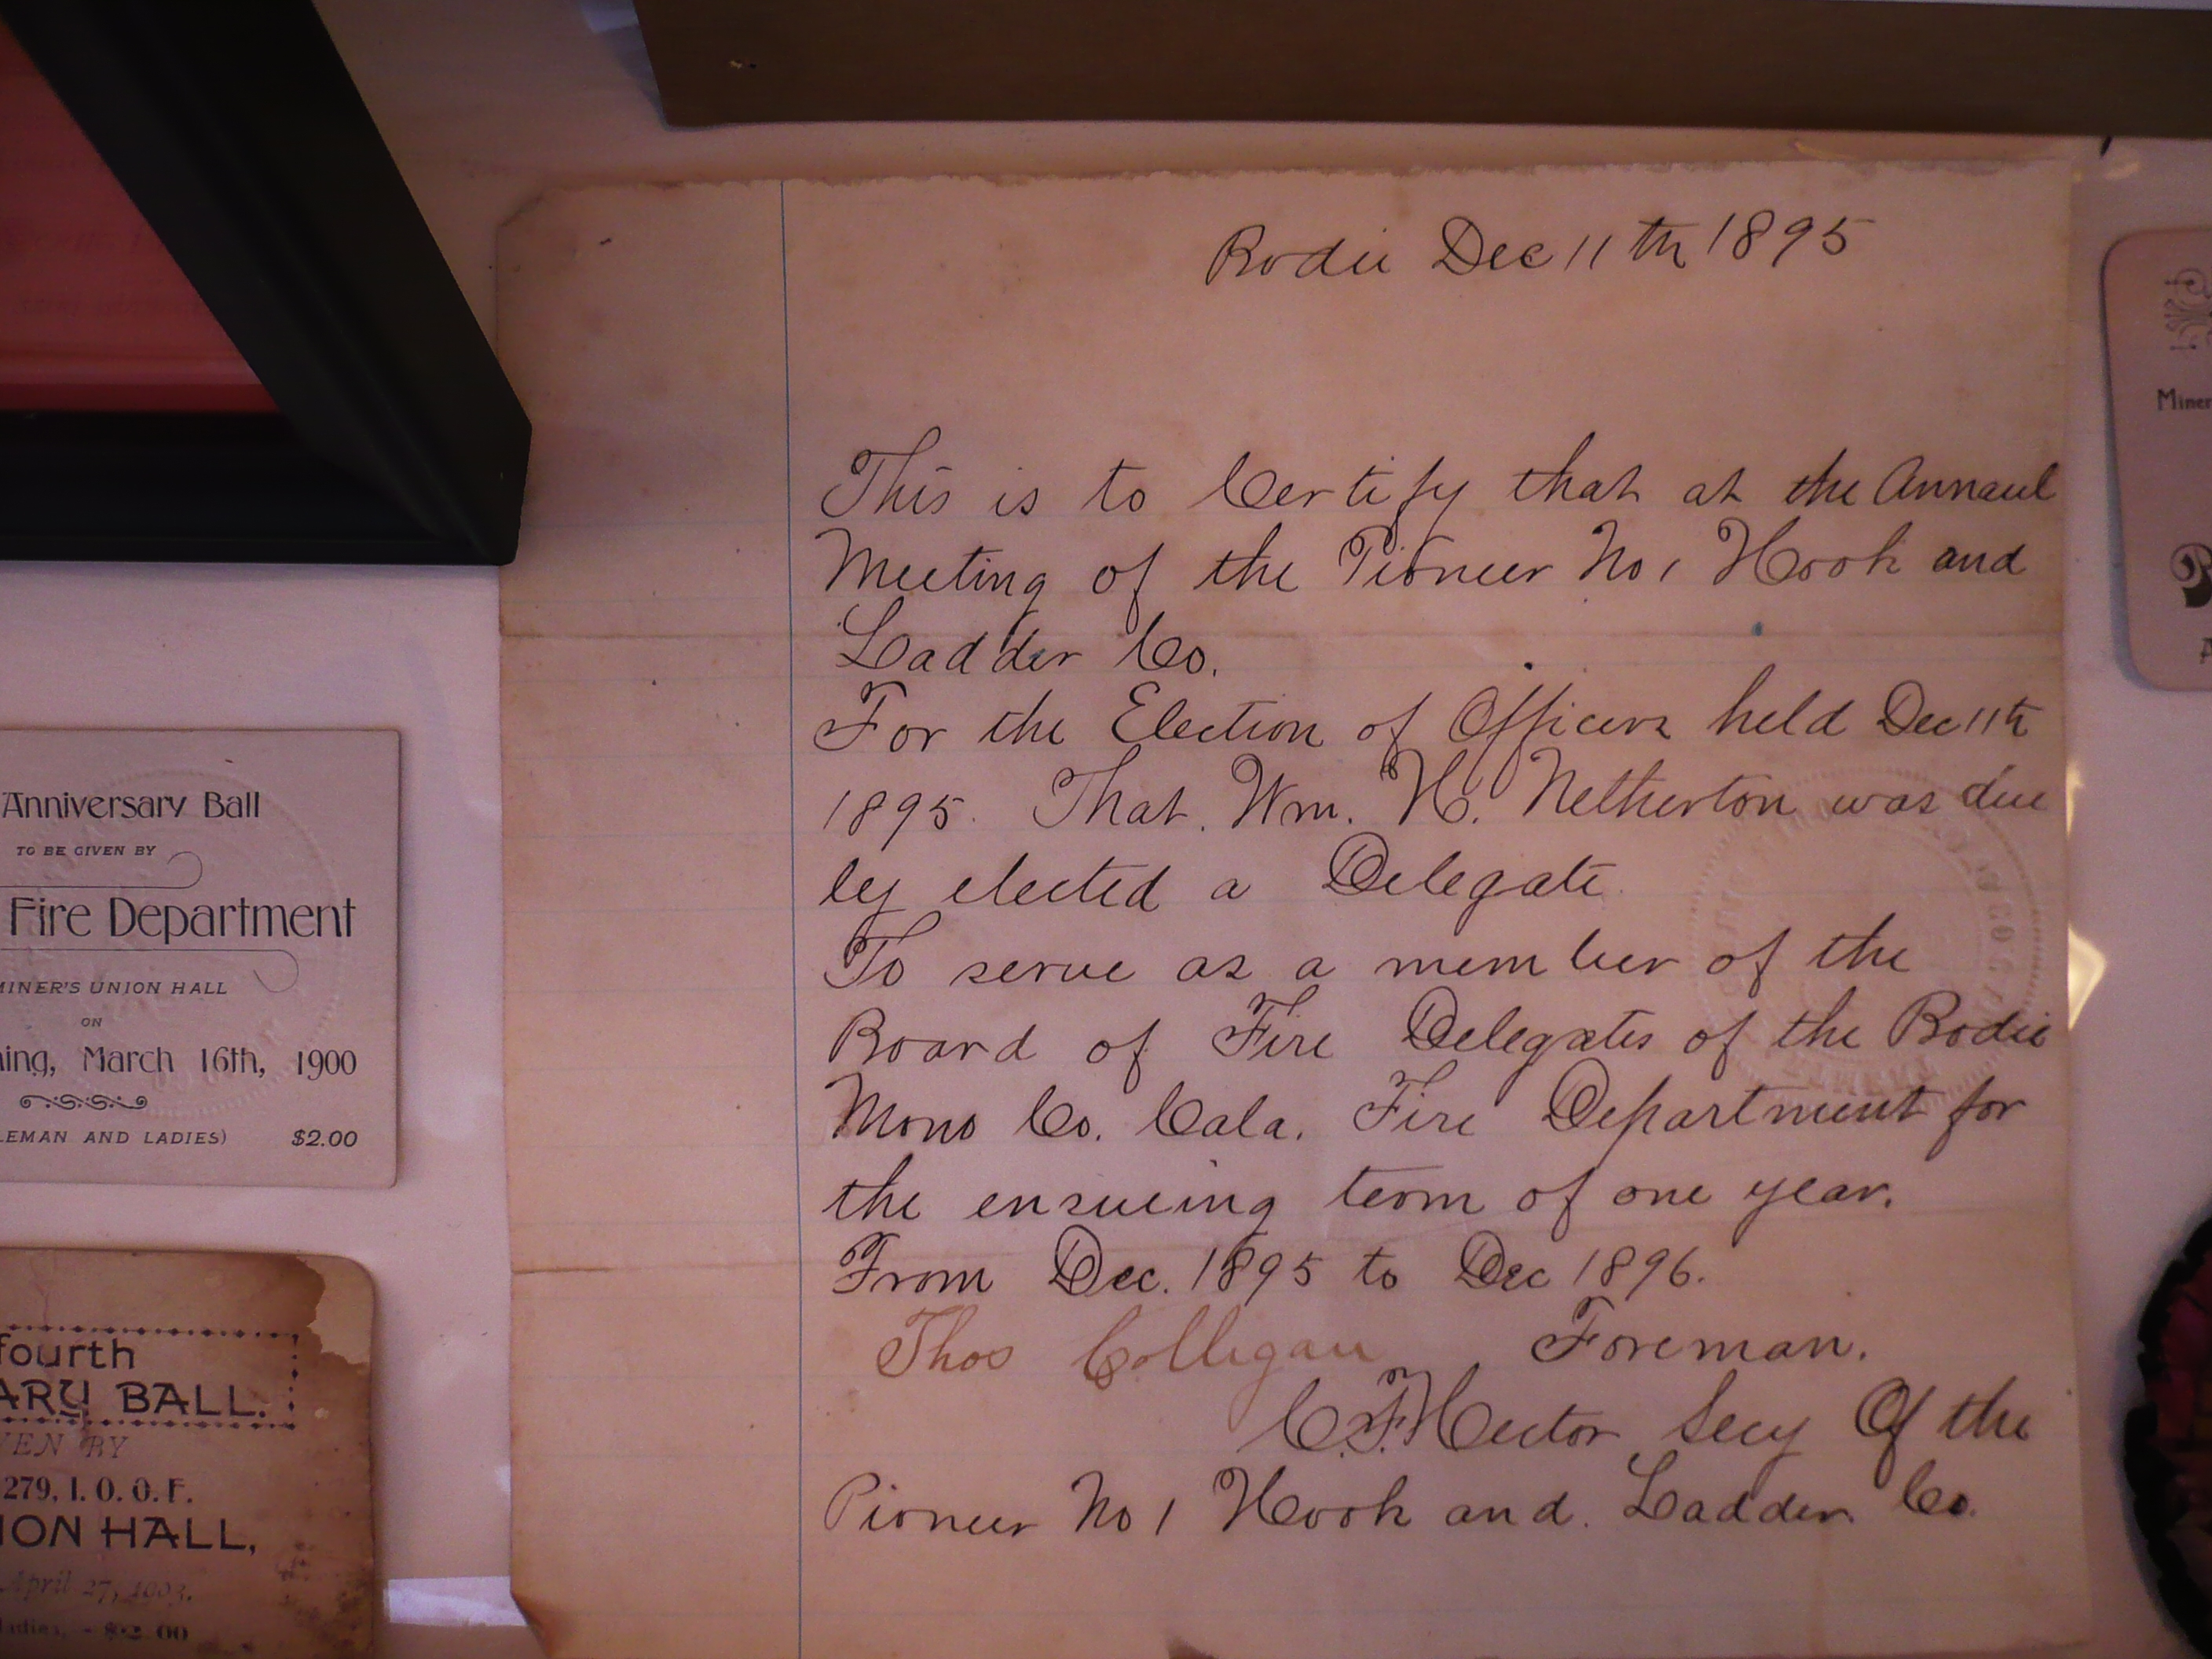 Bodie Dec 11th 1895
This is to Certify that at the Annaul
Meeting of the Pioneer No 1 Hook and
Ladder Co.
For the Election of Officers held Dec 11th
1895. That. Wm. H. Netherton was due
ly elected a Delegate.
To serve as a member of the
Board of Fire Delegates of the Bodie
Mono Co. Cala. Fire Department for
the ensueing term of one year.
From Dec. 1895 to Dec 1896.
Thos Colligan Foreman.
C.F. Hector Secy Of the
Pioneer No 1 Hook and. Ladder Co.
Anniversary Ball
TO BE GIVEN BY
Fire Department
MINER'S UNION HALL
ON
ning, March 16th, 1900
LEMAN AND LADIES) $2.00
fourth
ARY BALL.
VEN BY
279, I. O. O. F.
ION HALL,
April 27, 1903.
ladies, - $2.00
Miner